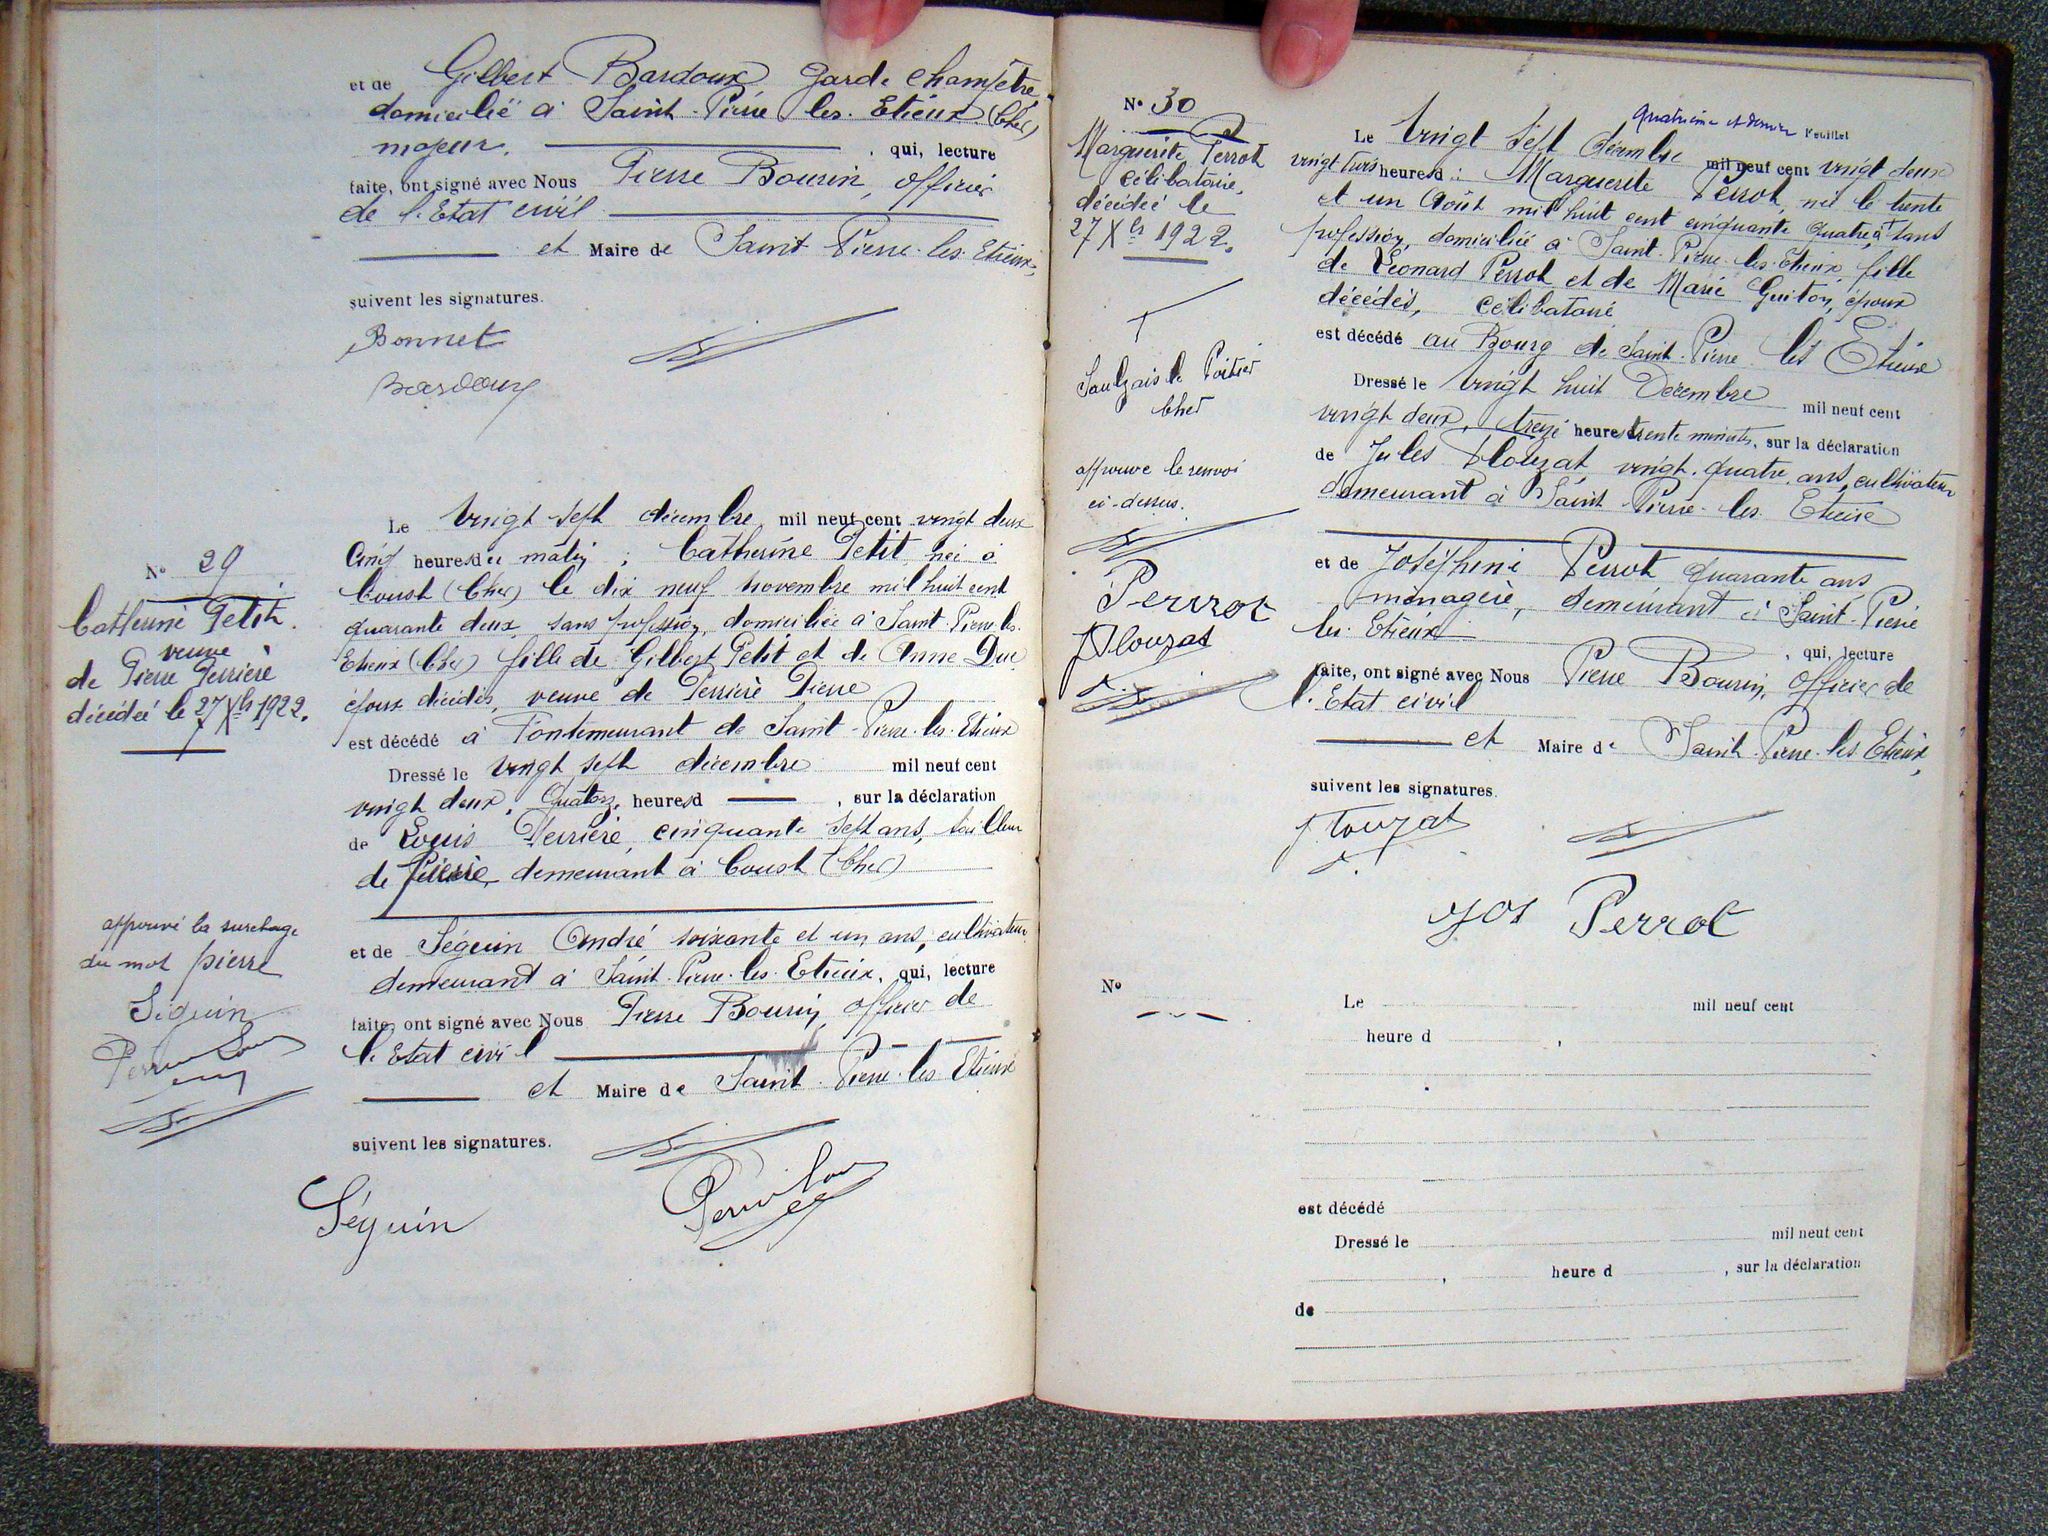 et de Gilbert Bardoux garde champêtre
domicilié à Saint-Pierre les Etieux (Cher)
majeur. , qui, lecture
faite, ont signé avec Nous Pierre Bourin, officier
de l'Etat civil
et Maire de Saint-Pierre-les-Etieux,
suivent les signatures.
Bonnet
Bardoux
N° 29
Catherine Petit
veuve
de Pierre Perrière
décédée le 27 Xbre 1922.
Le vingt sept décembre mil neuf cent vingt deux
cinq heures du matin, Catherine Petit, née à
Coust (Cher) le dix neuf novembre mil huit cent
quarante deux, sans profession, domiciliée à Saint-Pierre-les-
Etieux (Cher) fille de Gilbert Petit et de Anne Duc
époux décédés, veuve de Perrière Pierre
est décédé à Fontemeurant de Saint-Pierre-les-Etieux
Dressé le vingt sept décembre mil neuf cent
vingt deux, quatorze heures d , sur la déclaration
de Louis Perrière, cinquante sept ans, tailleur
de pierre, demeurant à Coust (Cher)
et de Séguin André soixante et un ans, cultivateur
demeurant à Saint-Pierre-les-Etieux, qui, lecture
faite, ont signé avec Nous Pierre Bourin, officier de
l'Etat civil
et Maire de Saint-Pierre-les-Etieux
suivent les signatures.
approuvé la surcharge
du mot pierre
Séguin
Séguin
N° 30
Marguerite Perrot
célibataire,
décédée le
27 Xbre 1922.
T
Saulzais le Potier
Cher
approuvé le renvoi
ci-dessus.
Perrot
J Plouzat
quatrième et dernier Feuillet
Le vingt sept décembre mil neuf cent vingt deux
vingt trois heures d : Marguerite Perrot, née le trente
et un Août mil huit cent cinquante quatre à T sans
profession, domiciliée à Saint-Pierre-les-Etieux, fille
de Léonard Perrot et de Marie Guiton, époux
décédés, célibataire
est décédé au Bourg de Saint-Pierre les Etieux
Dressé le vingt huit Décembre mil neuf cent
vingt deux, treize heures trente minutes, sur la déclaration
de Jules Plouzat, vingt-quatre ans, cultivateur
demeurant à Saint-Pierre-les-Etieux
et de Joséphine Perrot quarante ans
ménagère, demeurant à Saint-Pierre
les-Etieux , qui, lecture
faite, ont signé avec Nous Pierre Bourin, officier de
l'Etat civil
et Maire de Saint-Pierre-les-Etieux,
suivent les signatures.
J Plouzat
Jos Perrot
N°
Le mil neuf cent
heure d ,
est décédé
Dressé le mil neuf cent
, heure d , sur la déclaration
de